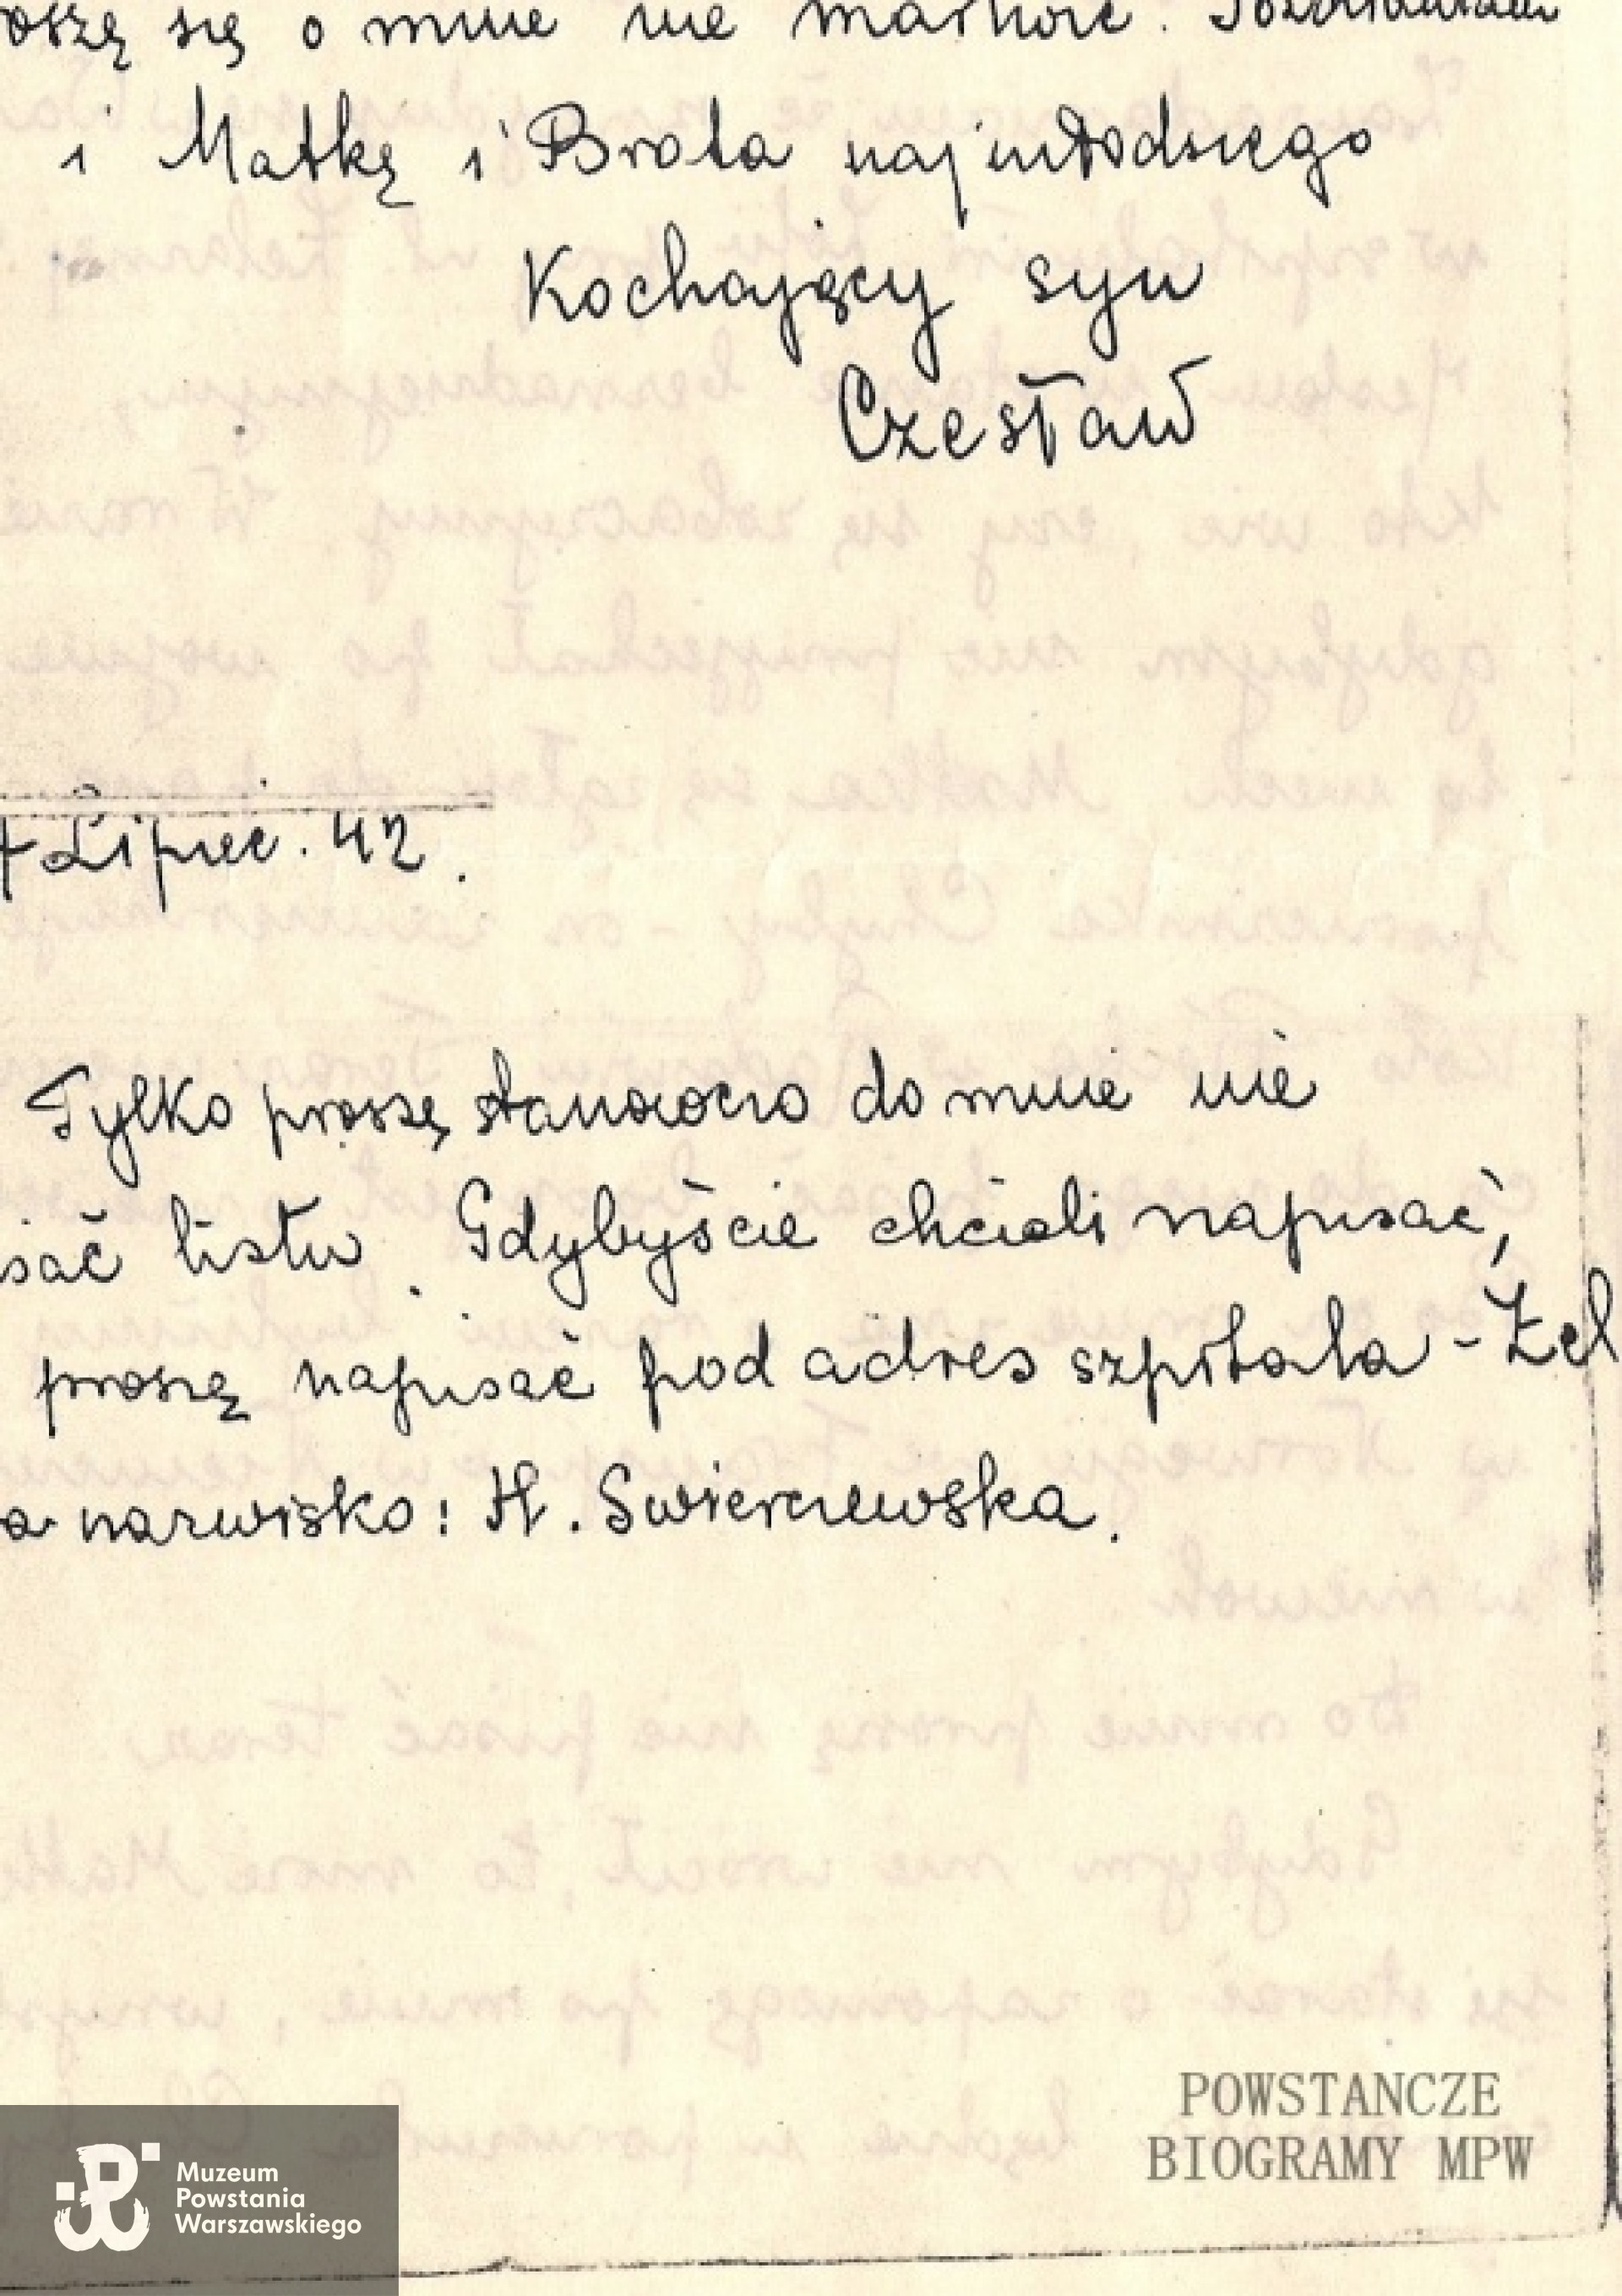 oszę się o mnie nie martwić. Pozdrawiam
i Matkę i Brata najmłodszego
Kochający syn
Czesław
Lipiec. 42.
Tylko proszę stanowczo do mnie nie
isać listu. Gdybyście chcieli napisać,
proszę napisać pod adres szpitala - Żel
a nazwisko: H. Swierczewska.
POWSTANCZE
BIOGRAMY MPW
Muzeum
Powstania
Warszawskiego